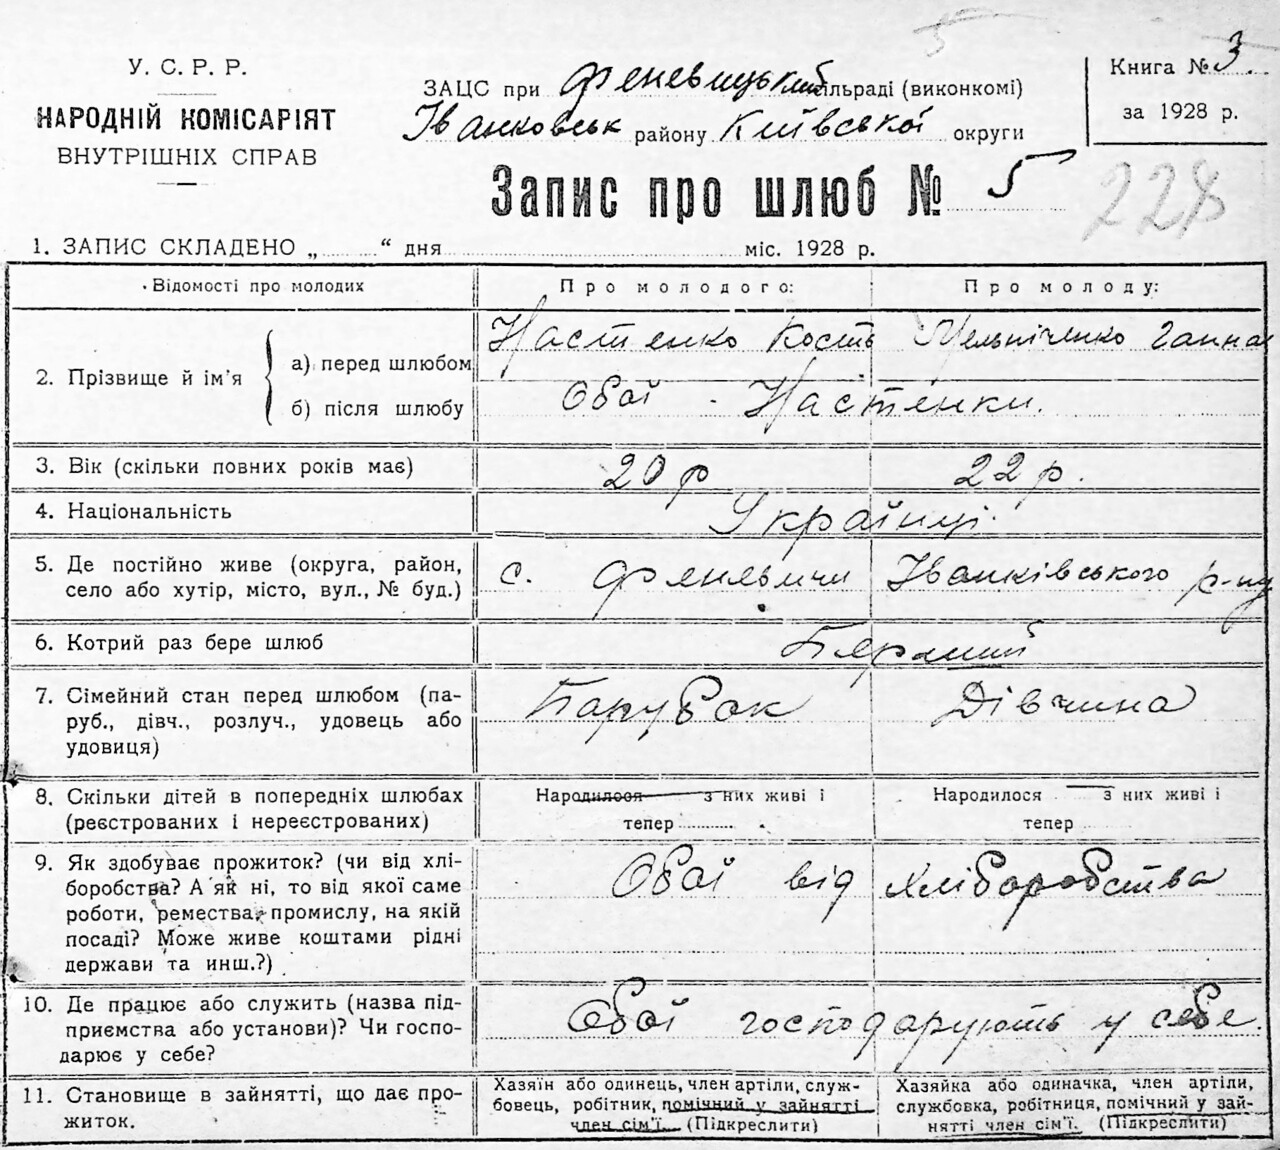 5
У. С. Р. Р.
НАРОДНІЙ КОМІСАРІЯТ
ВНУТРІШНІХ СПРАВ
ЗАЦС при Феневицькій сільраді (виконкомі)
Іванковськ району Київської округи
Книга № 3
за 1928 р.
Запис про шлюб № 5
228
1. ЗАПИС СКЛАДЕНО „ “ дня міс. 1928 р.
Відомості про молодих
Про молодого:
Про молоду:
2. Прізвище й ім’я
а) перед шлюбом
Настенко Кость
Мельніченко Ганна
б) після шлюбу
Обої - Настенки.
3. Вік (скільки повних років має)
20 р
22 р.
4. Національність
Українці.
5. Де постійно живе (округа, район,
село або хутір, місто, вул., № буд.)
с. Феневичи Іванківського р-ну
6. Котрий раз бере шлюб
Перший
7. Сімейний стан перед шлюбом (па-
руб., дівч., розлуч., удовець або
удовиця)
Парубок
Дівчина
8. Скільки дітей в попередніх шлюбах
(реєстрованих і нереєстрованих)
Народилося — з них живі і
тепер
Народилося — з них живі і
тепер
9. Як здобуває прожиток? (чи від хлі-
боробства? А як ні, то від якої саме
роботи, ремества, промислу, на якій
посаді? Може живе коштами рідні
держави та инш.?)
Обої від хліборобства
10. Де працює або служить (назва під-
приємства або установи)? Чи госпо-
дарює у себе?
Обої господарують у себе.
11. Становище в зайнятті, що дає про-
житок.
Хазяїн або одинець, член артіли, служ-
бовець, робітник, помічний у зайнятті
член сім’ї. (Підкреслити)
Хазяйка або одиначка, член артіли,
службовка, робітниця, помічний у зай-
нятті член сім’ї. (Підкреслити)